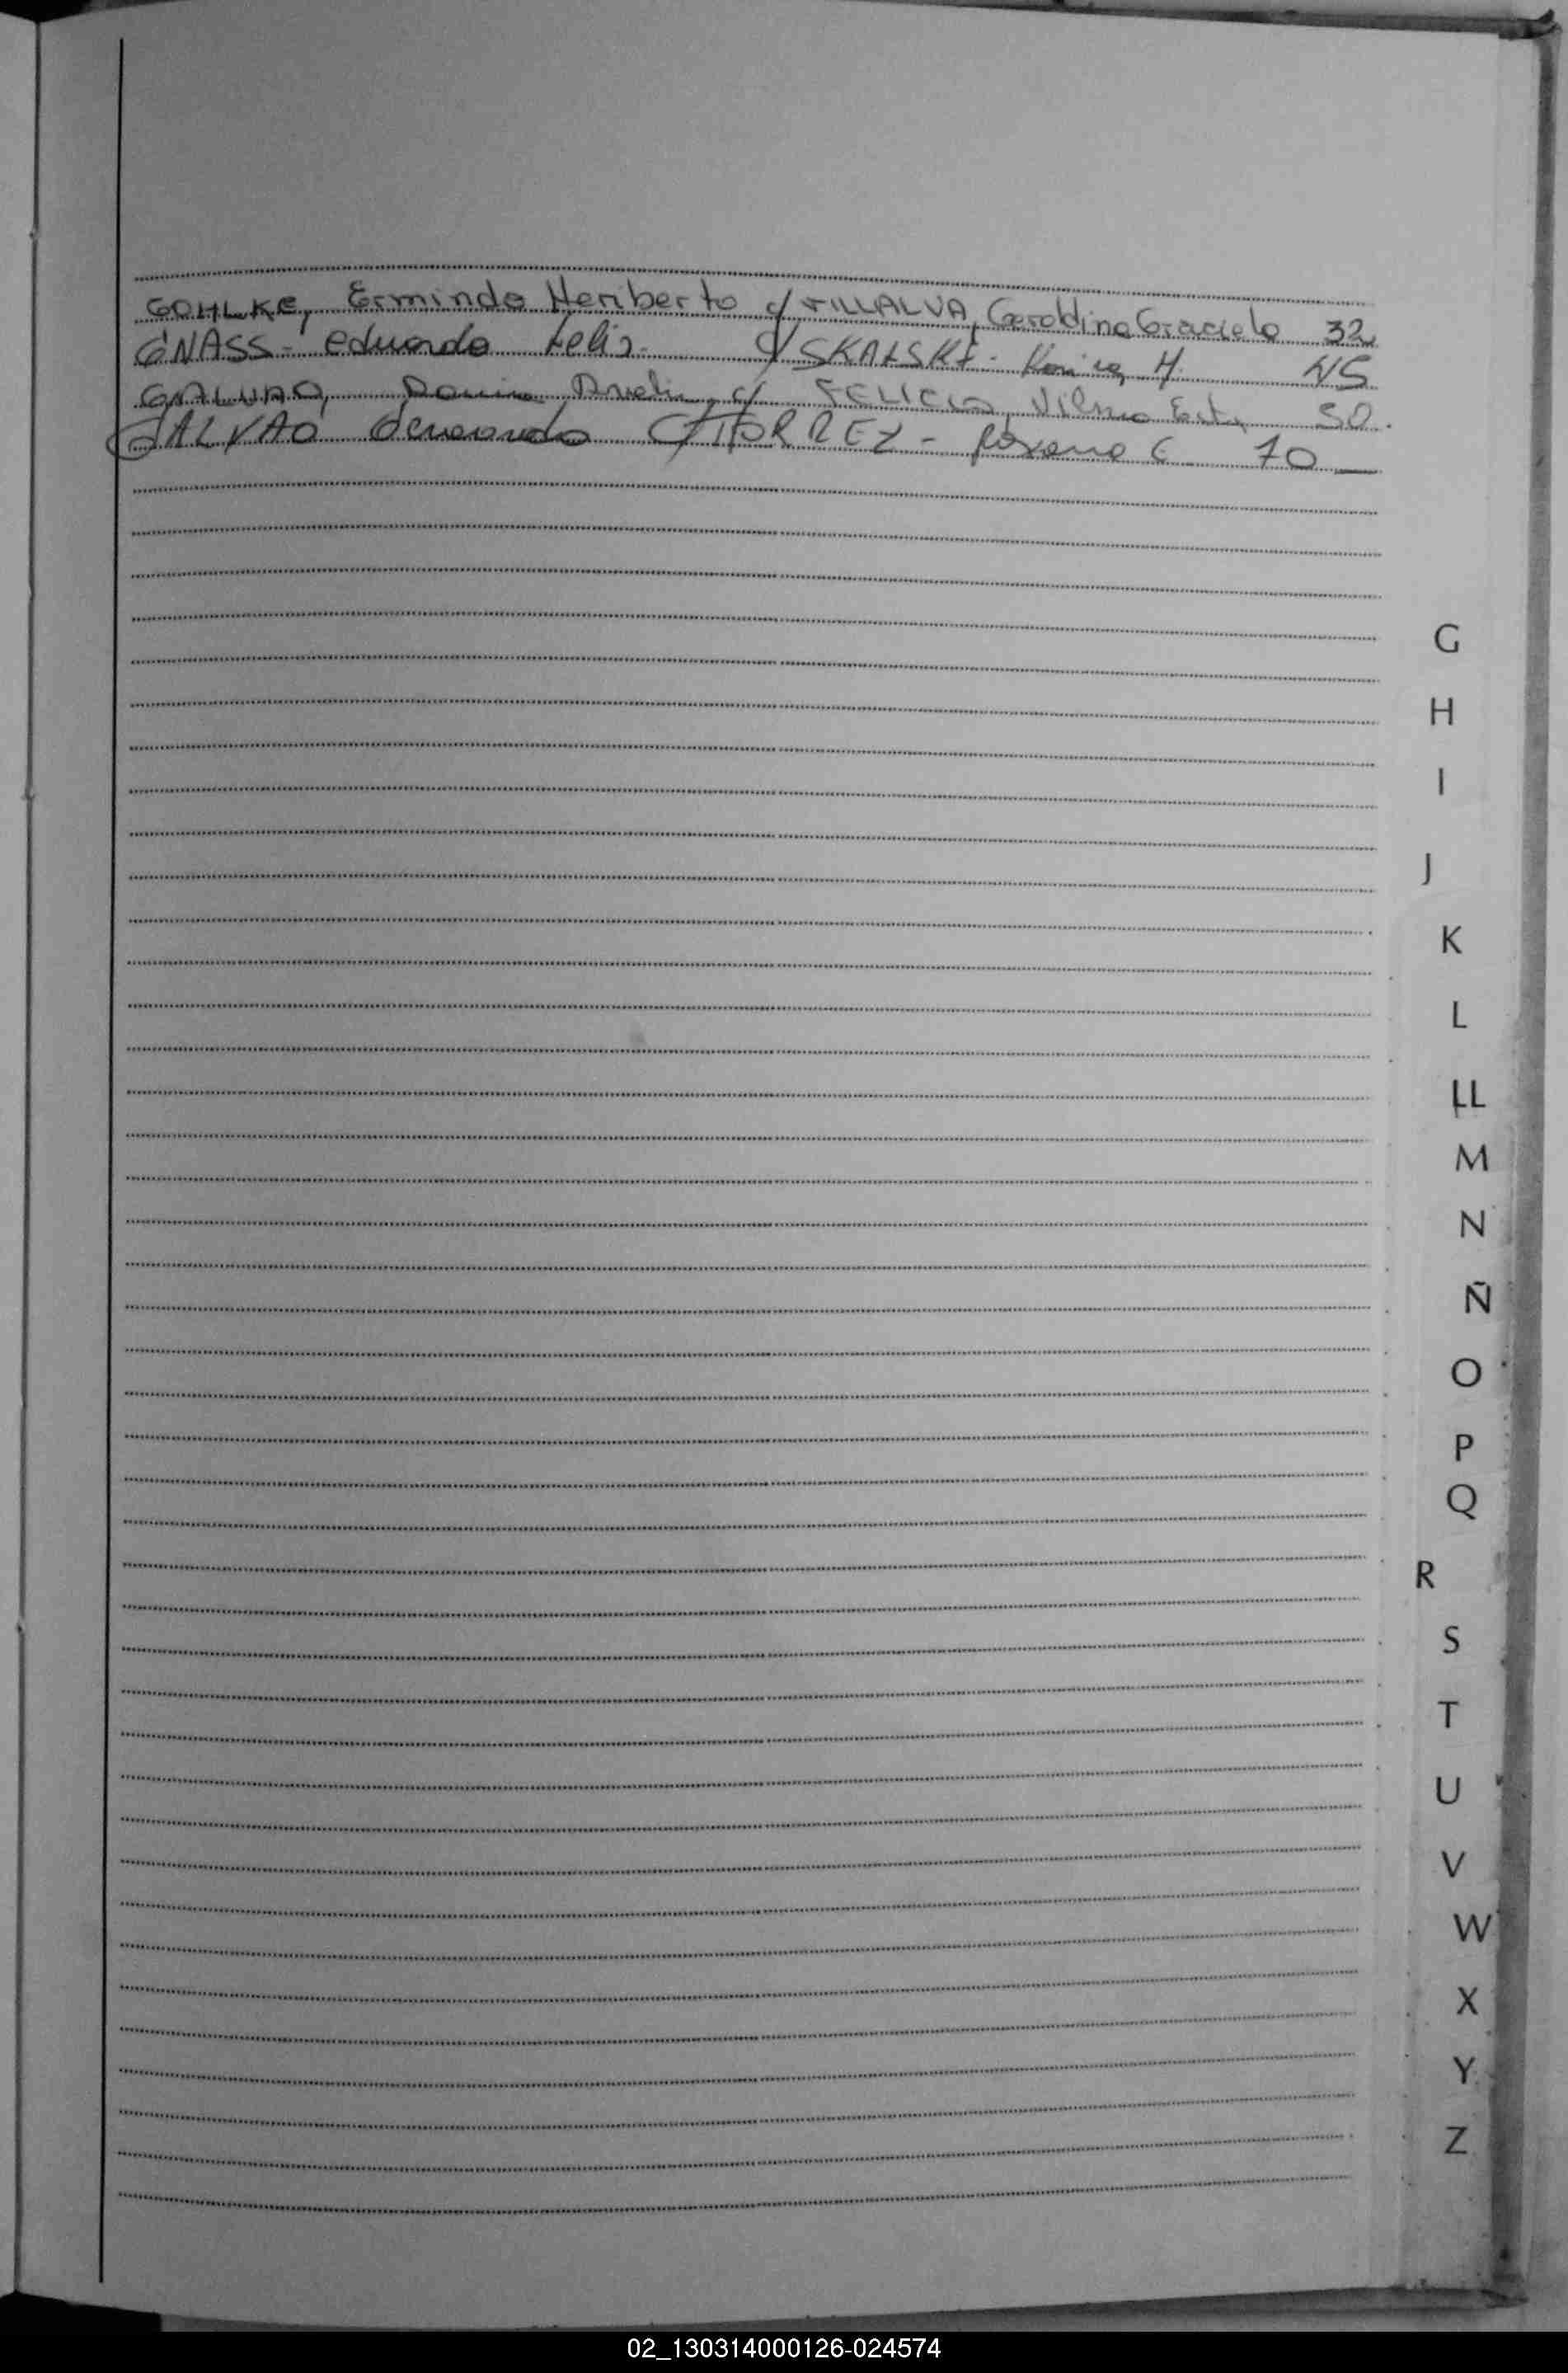 GOHLKE, Ermindo Heriberto c/ VILLALVA, Geroldina Graciela 32
GNASS - eduardo Felix. c/ SKALSKI - H. 45
GALVAO, c/ FELICIO, Vilma 50.
GALVAO c/ TORREZ - Roxana E 70
G
H
I
J
K
L
LL
M
N
Ñ
O
P
Q
R
S
T
U
V
W
X
Y
Z
02_130314000126-024574